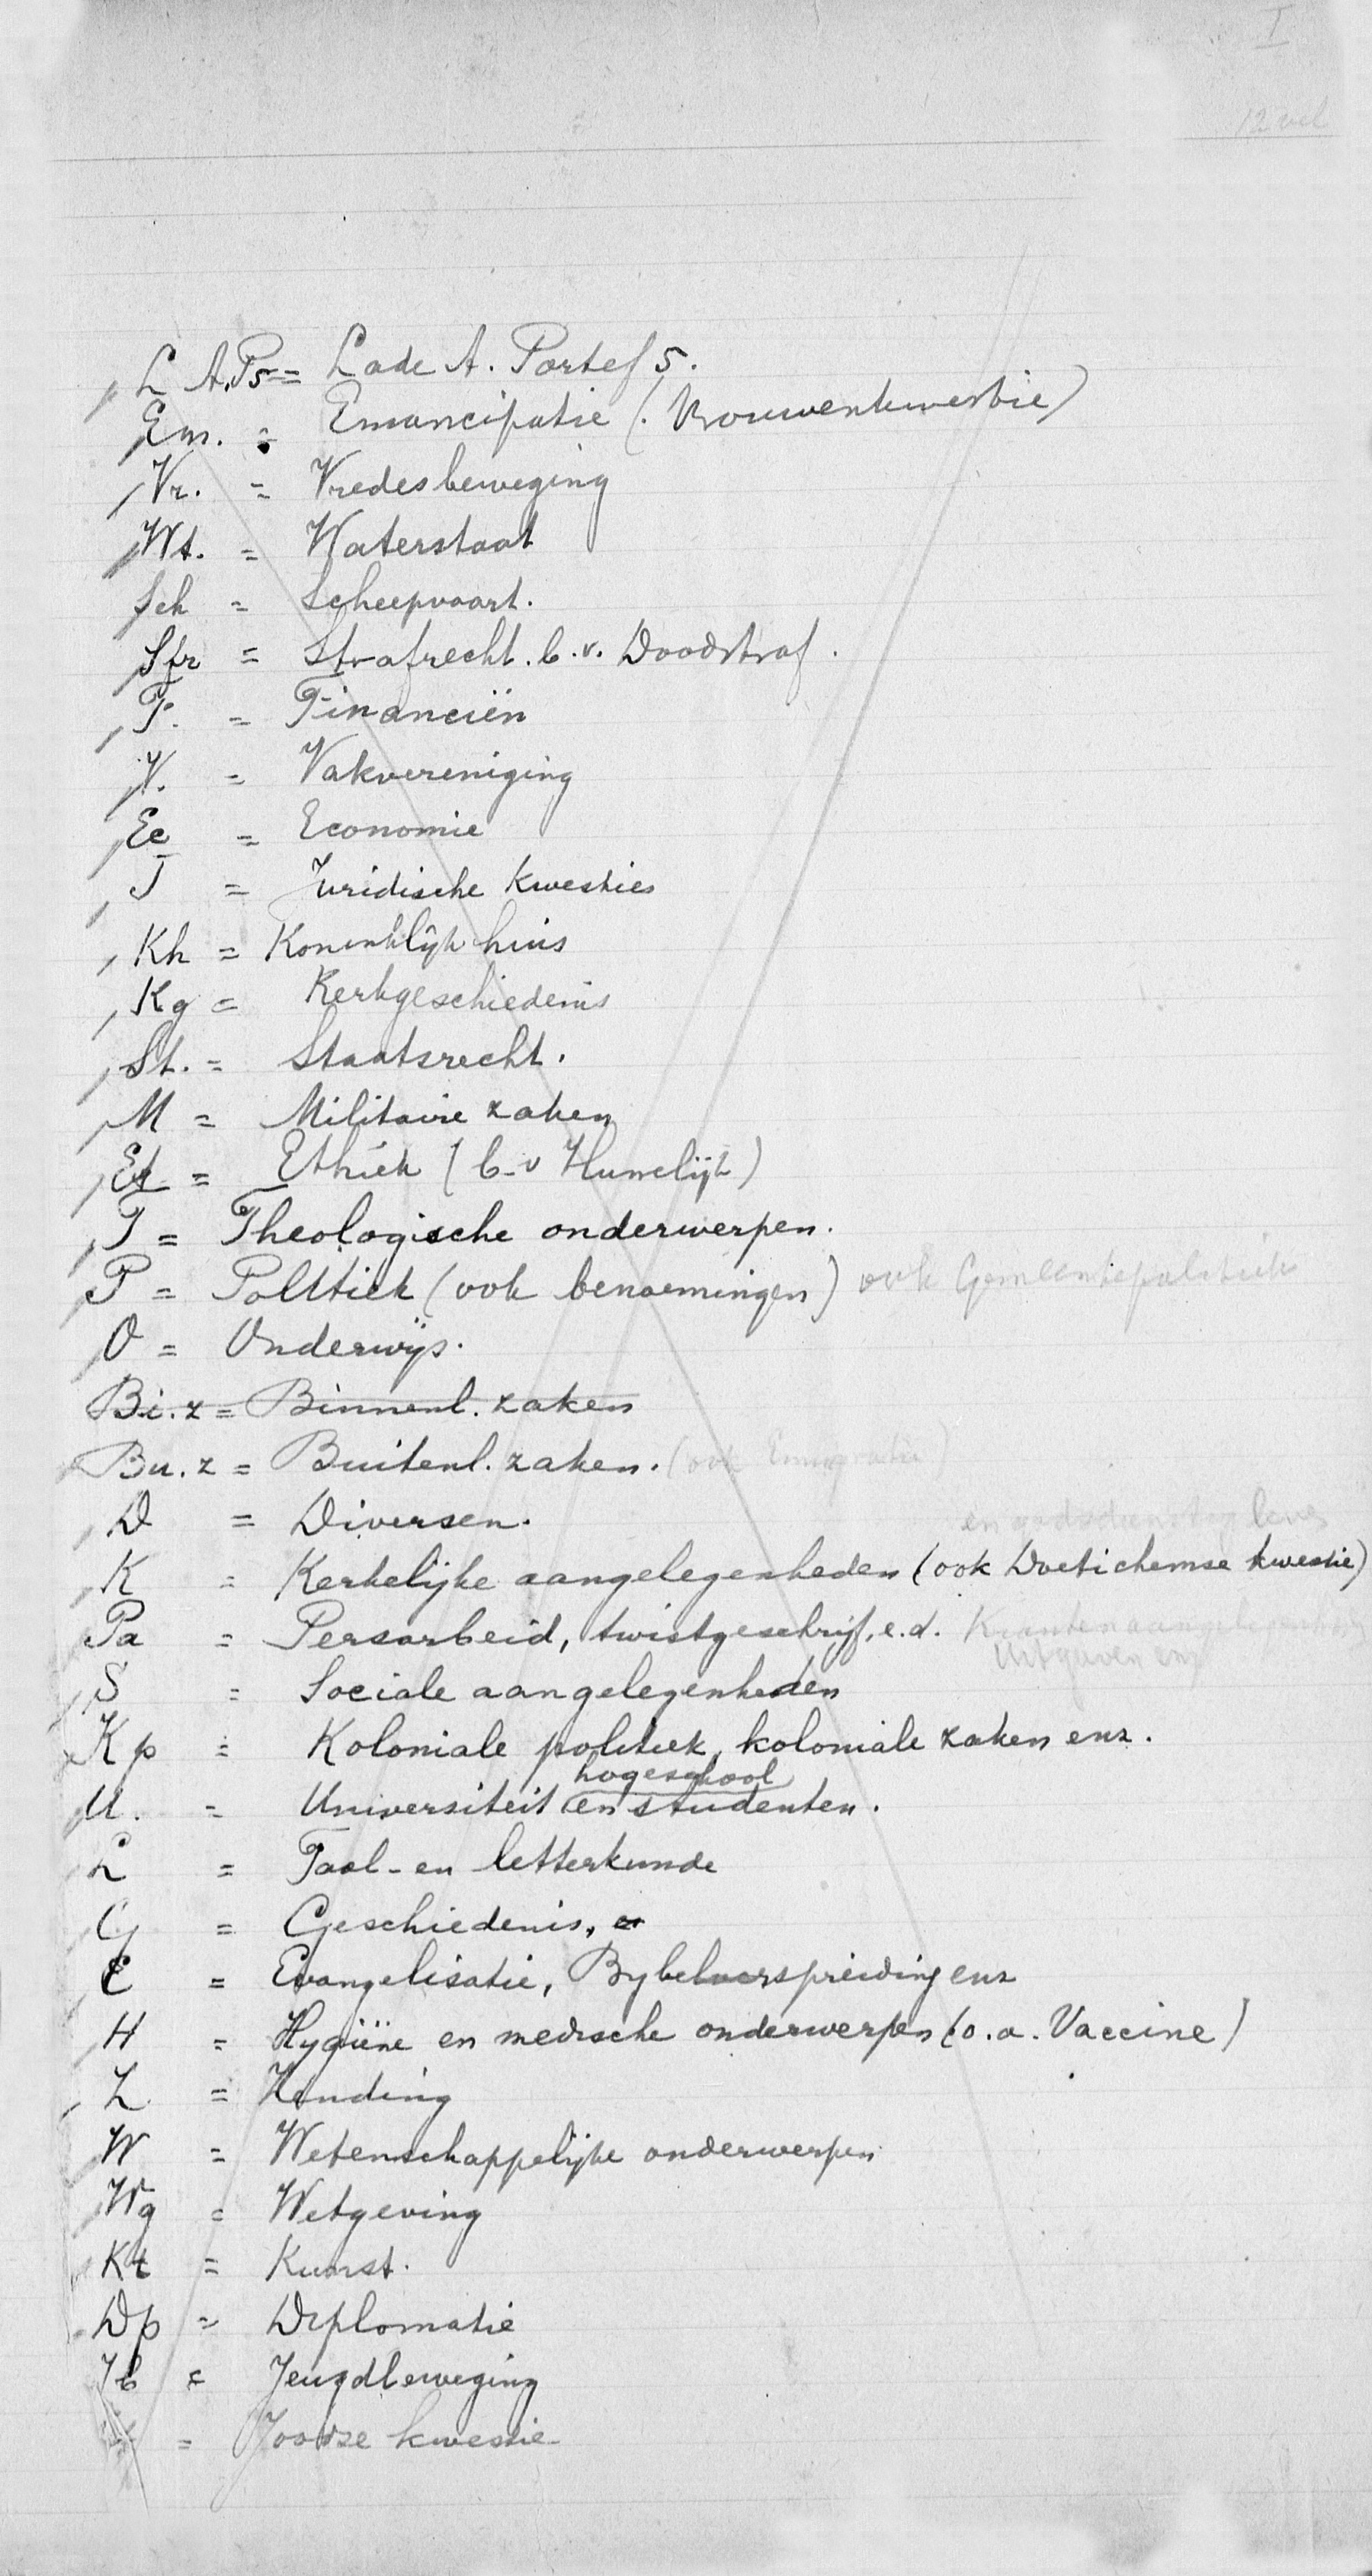 I
12 vel
L A.P5 = Lade A. Portef 5.
Em. = Emancipatie (. Vrouwenkwestie)
Vr. = Vredesbeweging
Wt. = Waterstaat
Sch = Scheepvaart.
Sfr = Strafrecht. b.v. Doodstraf.
F. = Financiën
V. = Vakvereniging
Ec = Economie
J = Juridische kwesties
Kh = Koninklijk huis
Kg = Kerkgeschiedenis
St. = Staatsrecht.
M = Militaire zaken
Et = Ethiek (b.v Huwelijk)
T = Theologische onderwerpen.
P = Politiek (ook benoemingen) ook Gemeentepolitiek
O = Onderwijs.
Bi.z = Binnenl. zaken
Bu.z = Buitenl. zaken. (ook Emigratie)
D = Diversen.
en godsdienstig leven
K = Kerkelijke aangelegenheden (ook Doetichemse kwestie)
Pa = Persarbeid, twistgeschrijf, e.d. Krantenaangelegenheden
Uitgaven enz
S = Sociale aangelegenheden
Kp = Koloniale politiek, koloniale zaken enz.
hogeschool
U. = Universiteit en studenten.
L = Taal- en letterkunde
G = Geschiedenis,
E = Evangelisatie, Bybelverspreiding enz
H = Hygiëne en medische onderwerpen (o.a. Vaccine)
Z = Zending
W = Wetenschappelijke onderwerpen
Wg = Wetgeving
Kt = Kunst.
Dp = Diplomatie
Jb = Jeugdbeweging
= Joodse kwestie